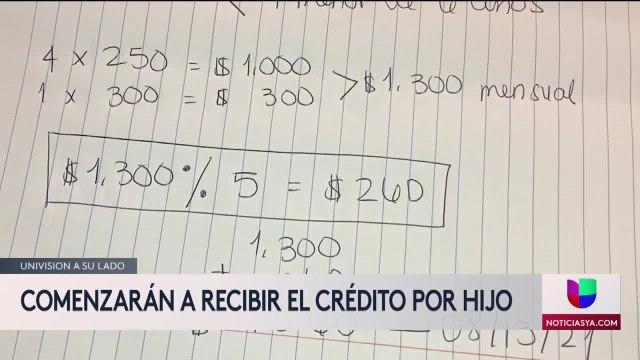 menor de 6 años
4 x 250 = $1,000
1 x 300 = $ 300 > $1,300 mensual
$1,300 % 5 = $260
1,300
UNIVISION A SU LADO
COMENZARÁN A RECIBIR EL CRÉDITO POR HIJO
UNIVISION
NOTICIASYA.COM
08/13/21